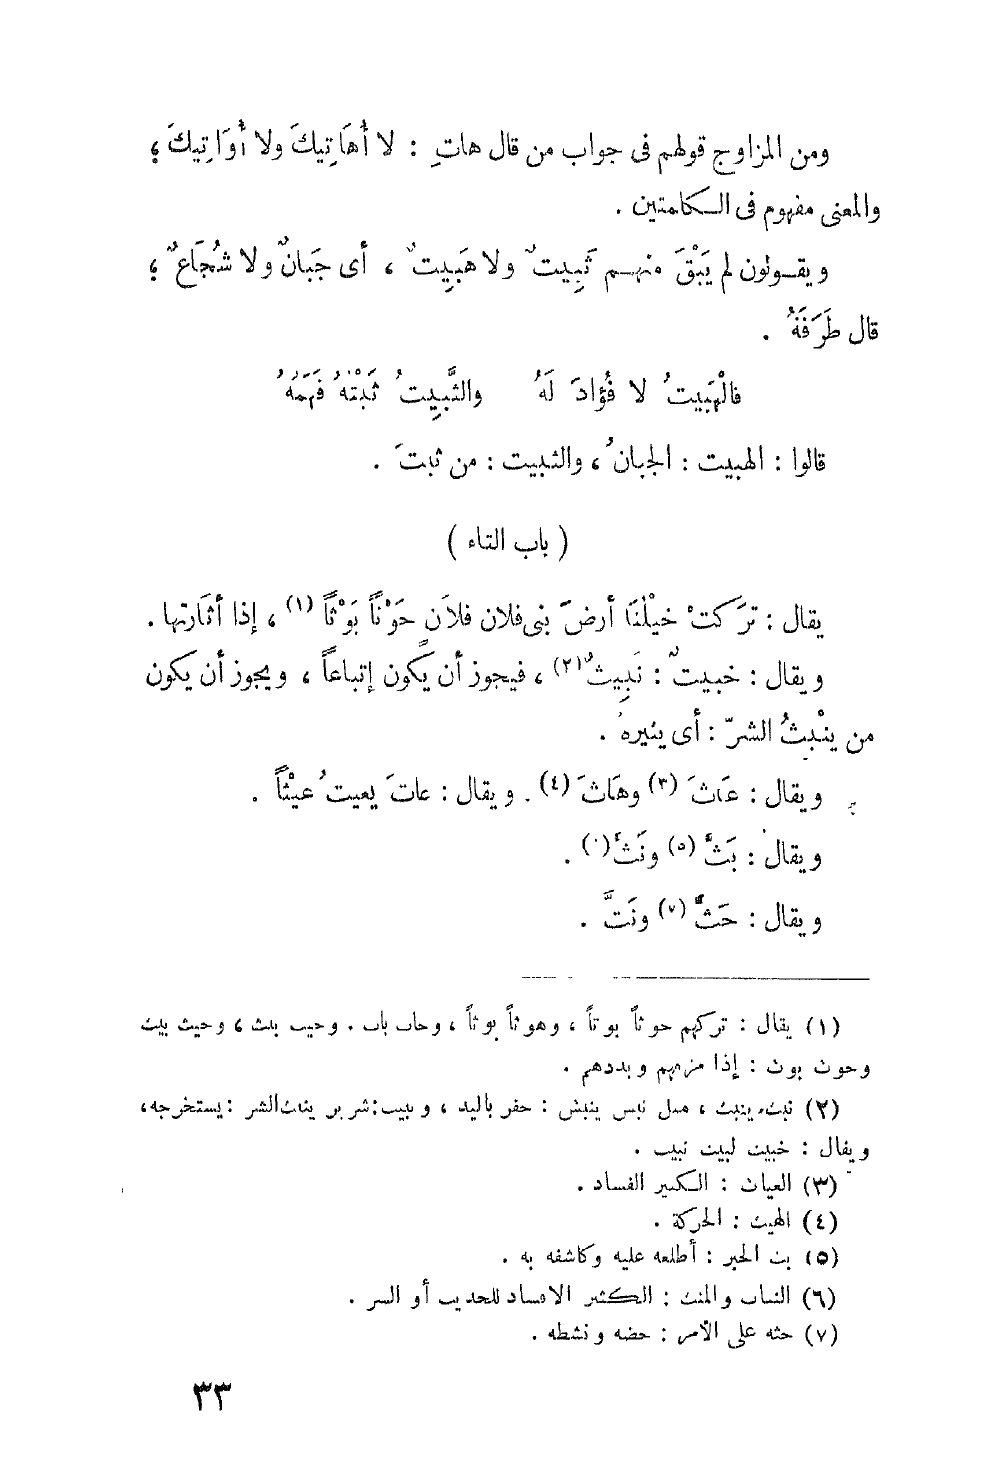 ومن المزاوج قولهم فى جواب من قال هاتِ : لا أُهَاتِيكَ ولا أُوَاتِيكَ ؛
والمعنى مفهوم فى الكلمتين .
ويقولون لم يَبْقَ منهم ثَبِيتٌ ولا هَبِيتٌ ، أى جَبانٌ ولا شُجَاعٌ ؛
قال طَرَفَةُ .
فالْهَبِيتُ لا فُؤَادَ لَهُ والثَّبِيتُ ثَبْتُهُ فَهَمُهُ
قالوا : الهبيت : الجبانُ ، والثبيت : من ثبتَ .
( باب الثاء )
يقال : تَرَكتْ خيلُنَا أرضَ بنى فلان فلَان حَوْثاً بَوْثاً (١) ، إذا أثَارتها .
ويقال : خبيثٌ : نَبِيثٌ (٢) ، فيجوز أن يكون إتباعاً ، ويجوز أن يكون
من ينْبثُ الشرّ : أى يثيرهُ .
ويقال : عَاثَ (٣) وهَاثَ (٤) . ويقال : عاثَ يعيثُ عيْثاً .
ويقال : بَثَّ (٥) ونَثَّ (٦) .
ويقال : حَثٌّ (٧) ونَثَّ .
(١) يقال : تركهم حوثاً بوثاً ، وهوثاً بوثاً ، وحاث باث . وحيث بيث ، وحيث بيث
وحوث بوث : إذا مزقهم وبددهم .
(٢) نبث ينبث ، مثل نبش ينبش : حفر باليد ، ونبيث : شرير ينبث الشر : يستخرجه ،
ويقال : خبيث لبيث نبيث .
(٣) العياث : الكثير الفساد .
(٤) الهيث : الحركة .
(٥) بث الخبر : أطلعه عليه وكاشفه به .
(٦) النثاث والمنث : الكثير الافساد للحديث أو السر .
(٧) حثه على الأمر : حضه ونشطه .
٣٣